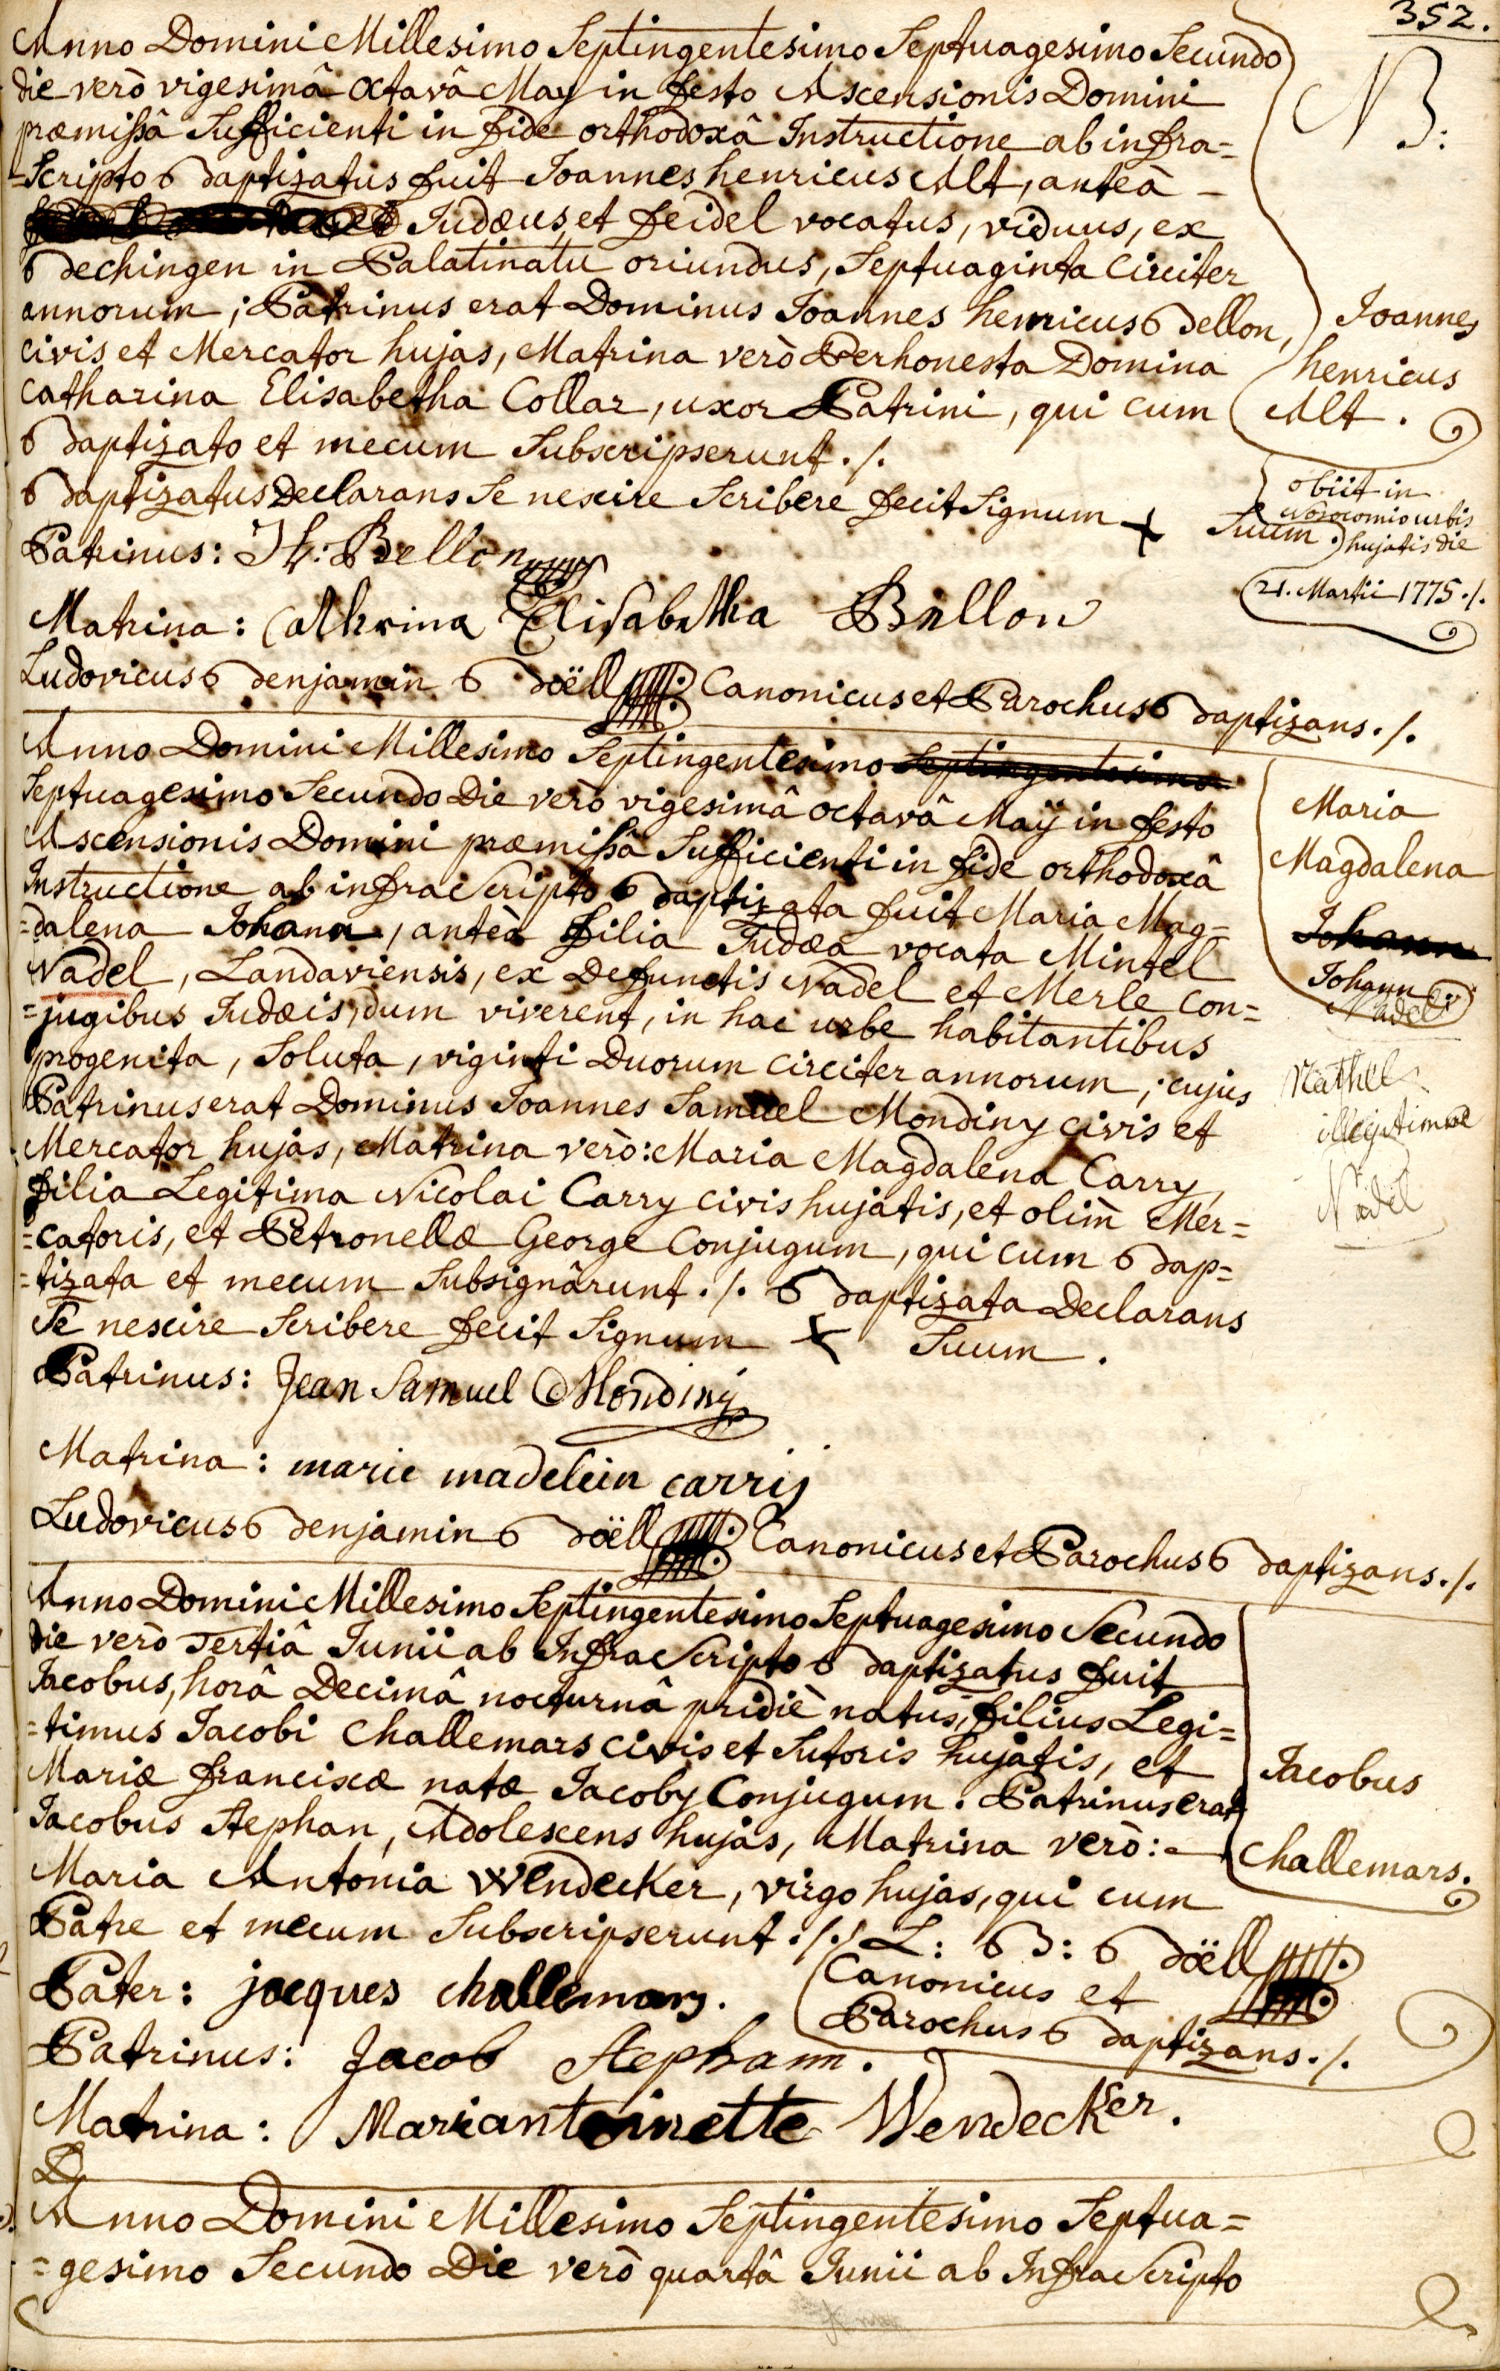 352.
Anno Domini Millesimo Septingentesimo Septuagesimo Secundo
die verò vigesimâ octavâ May in festo Ascensionis Domini
præmissâ Sufficienti in fide orthodoxâ Instructione ab infra=
=Scripto Baptizatus fuit Joannes henricus Alt, anteà
Judæus, et feidel vocatus, viduus, ex
Bechingen in Palatinatu oriundus, Septuaginta circiter
annorum; Patrinus erat Dominus Joannes henricus Bellon,
civis et Mercator hujas, Matrina verò Perhonesta Domina
Catharina Elisabetha Collar, uxor Patrini, qui cum
Baptizato et mecum Subscripserunt ./.
Baptizatus Declarans Se nescire Scribere fecit Signum + Suum.
Patrinus: Jh: Bellon
Matrina: Cathrina Elisabetha Bellon
Ludovicus Benjamin Boëll Canonicus et Parochus Baptizans ./.
NB:
Joannes
henricus
Alt.
obiit in
Nosocomio urbis
hujatis die
21. Martii 1775 ./.
Anno Domini Millesimo Septingentesimo Septingentesimo
Septuagesimo Secundo Die verò vigesimâ octavâ Maÿ in festo
Ascensionis Domini præmissâ Sufficienti in fide orthodoxâ
Instructione ab infra Scripto Baptizata fuit Maria Mag=
=dalena Johann, anteà filia Judæa vocata Mintel
Nadel, Landaviensis, ex Defunctis Nadel et Merle con=
=jugibus Judæis, dum viverent, in hac urbe habitantibus
progenita, Soluta, viginti Duorum circiter annorum; cujus
Patrinus erat Dominus Joannes Samuel Mondiny civis et
Mercator hujas, Matrina verò: Maria Magdalena Carry,
filia Legitima Nicolai Carry civis hujatis, et olim Mer=
=catoris, et Petronellæ George Conjugum, qui cum Bap=
=tizata et mecum Subsignârunt ./. Baptizata Declarans
Se nescire Scribere fecit Signum + Suum.
Patrinus: Jean Samuel Mondinÿ
Matrina: marie madelein carrij
Ludovicus Benjamin Boëll Canonicus et Parochus Baptizans ./.
Maria
Magdalena
Johann
Johann
Nadel
Nathel
illegitimae
Nadel
Anno Domini Millesimo Septingentesimo Septuagesimo Secundo
die verò Tertiâ Junii ab Infra Scripto Baptizatus fuit
Jacobus, horâ Decimâ nocturnâ pridiè natus, filius Legi=
=timus Jacobi Challemars civis et Sutoris hujatis, et
Mariæ franciscæ natæ Jacoby Conjugum. Patrinus erat
Jacobus Stephan, Adolescens hujas, Matrina verò:
Maria Antonia Wendecker, virgo hujas, qui cum
Patre et mecum Subscripserunt ./. L: B: Boëll
Canonicus et
Parochus Baptizans ./.
Pater: jacques challemars.
Patrinus: Jacob Stephann.
Matrina: Mariantoinette Wendecker.
Jacobus
Challemars.
Anno Domini Millesimo Septingentesimo Septua=
=gesimo Secundo Die verò quartâ Junii ab Infra Scripto